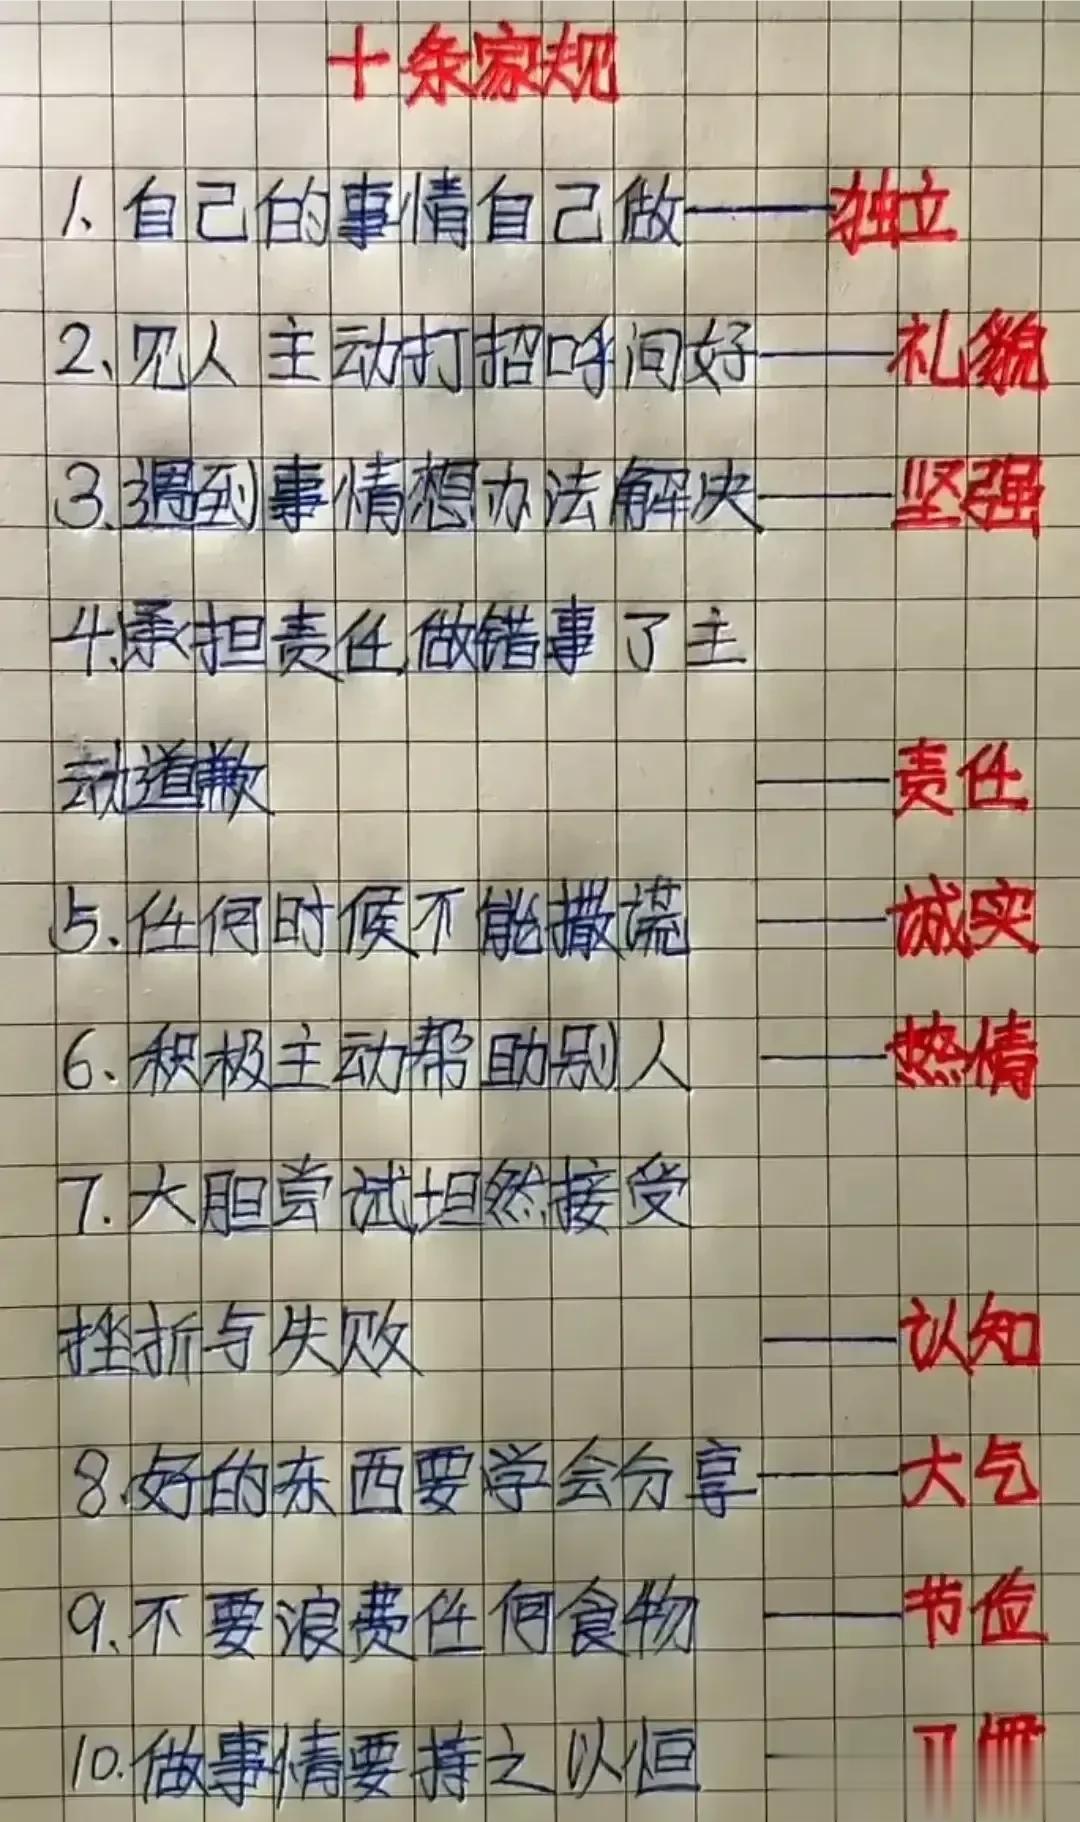 十条家规
1、自己的事情自己做——独立
2、见人主动打招呼问好——礼貌
3、遇到事情想办法解决——坚强
4、承担责任,做错事了主
动道歉——责任
5、任何时候不能撒谎——诚实
6、积极主动帮助别人——热情
7.大胆尝试坦然接受
挫折与失败——认知
8.好的东西要学会分享——大气
9.不要浪费任何食物——节俭
10.做事情要持之以恒——习惯